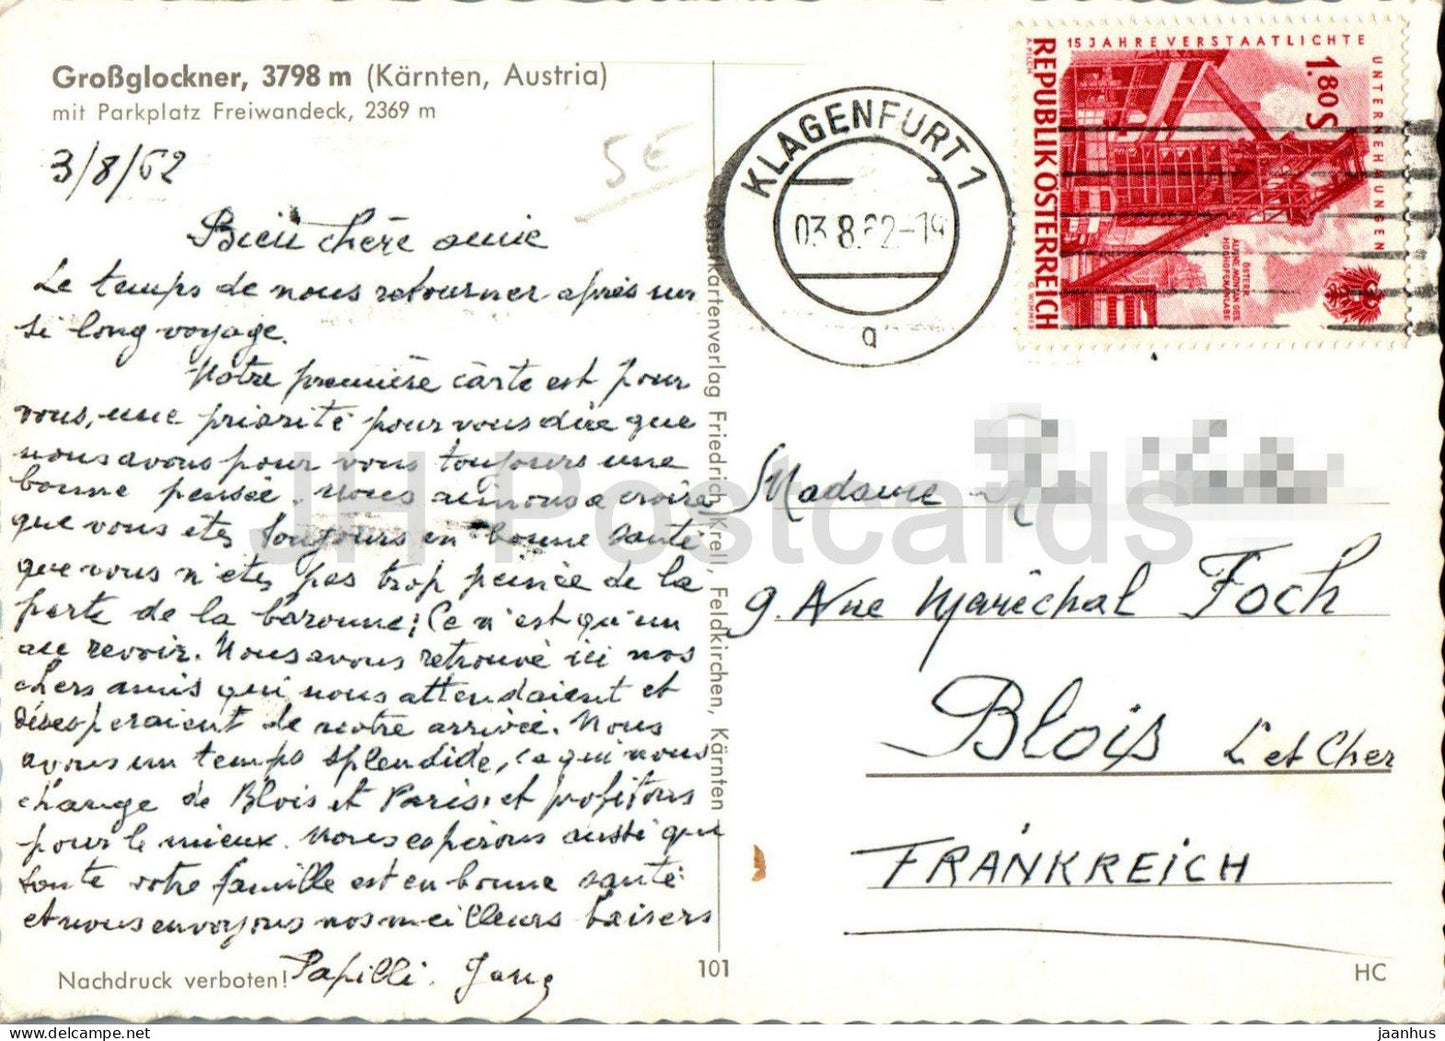 Großglockner, 3798 m (Kärnten, Austria)
mit Parkplatz Freiwandeck, 2369 m
3/8/62
5E
Bien chère amie
Le temps de nous retourner après un
si long voyage.
Notre première carte est pour
vous, une priorité pour vous dire que
nous avons pour vous toujours une
bonne pensée. Nous aimons a croire
que vous etes toujours en bonne santé
que vous n'etes pas trop peinée de la
perte de la baronne; Ce n'est qu'un
au revoir. Nous avons retrouvé ici nos
chers amis qui nous attendaient et
désesperaient de notre arrivée. Nous
avons un temps splendide, ce qui nous
change de Blois et Paris, et profitons
pour le mieux. Nous esperons aussi que
toute votre famille est en bonne santé
et nous envoyons nos meilleurs baisers
Papilli.
Nachdruck verboten!
101
HC
Kunstkartenverlag Friedrich Krell, Feldkirchen, Kärnten
KLAGENFURT 1
03.8.62-19
a
15 JAHRE VERSTAATLICHTE
UNTERNEHMUNGEN
1.80 S
REPUBLIK ÖSTERREICH
A. PILCH
G. WIMMER
ÖSTERR.
ALPINE MONTAN GES.
HOCHOFENANLAGE
Madame
9. Rue Maréchal Foch
Blois L. et Cher
FRANKREICH
JH Postcards
jaanhus